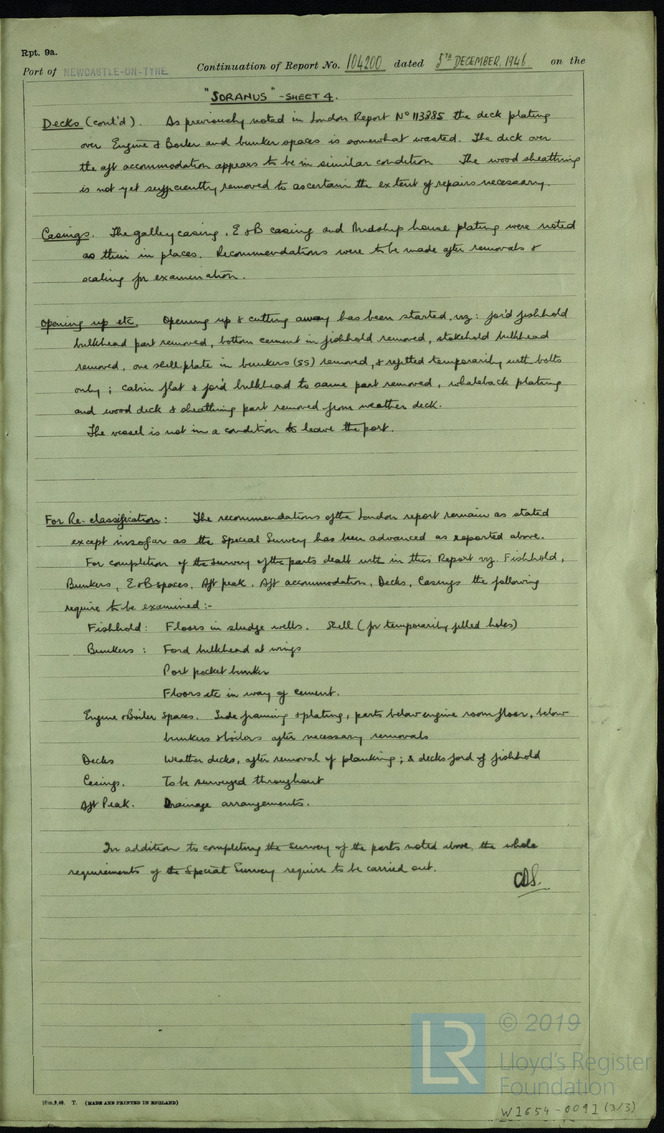 Rpt. 9a.
Port of NEWCASTLE-ON-TYNE Continuation of Report No. 104200 dated 5TH DECEMBER, 1946 on the
"SORANUS" - SHEET 4.
Decks (cont'd). As previously noted in London Report No 113885 the deck plating
over Engine & Boiler and bunker spaces is somewhat wasted. The deck over
the aft accommodation appears to be in similar condition The wood sheathing
is not yet sufficiently removed to ascertain the extent of repairs necessary.
Casings. The galley casing, E & B casing and Midship house plating were noted
as thin in places. Recommendations were to be made after removals &
scaling for examination.
Opening up etc. Opening up & cutting away has been started, viz: for'd fishhold
bulkhead part removed, bottom cement in fishhold removed, stokehold bulkhead
removed, one shell plate in bunkers (SS) removed, & refitted temporarily with bolts
only; cabin flat & for'd bulkhead to same part removed, whaleback plating
and wood deck & sheathing part removed from weather deck.
The vessel is not in a condition to leave the port.
For Re-classification: The recommendations of the London report remain as stated
except insofar as the Special Survey has been advanced as reported above.
For completion of the survey of the parts dealt with in this Report viz. Fishhold,
Bunkers, E & B spaces, Aft peak, Aft accommodation, Decks, Casings the following
require to be examined:-
Fishhold: Floors in sludge wells. Shell (for temporarily filled holes)
Bunkers: Ford bulkhead at wings
Port pocket bunker
Floors etc in way of cement.
Engine & Boiler Spaces. Side framing & plating, parts below engine room floor, below
bunkers & boilers after necessary removals
Decks Weather decks, after removal of planking; & decks ford of fishhold
Casings. To be surveyed throughout
Aft Peak. Drainage arrangements.
In addition to completing the Survey of the parts noted above, the whole
requirements of the Special Survey require to be carried out.
T. (MADE AND PRINTED IN ENGLAND)
LR © 2019
Lloyd's Register
Foundation
W1654-0091 (3/3)